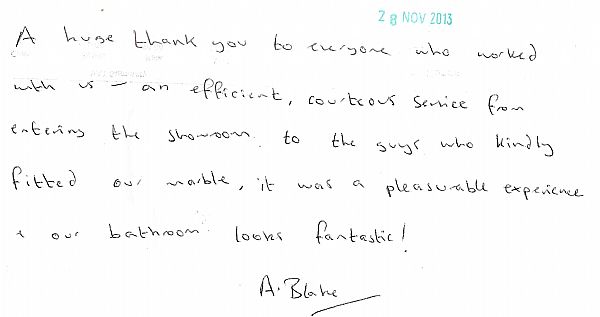 28 NOV 2013
A huge thank you to everyone who worked
with us - an efficient, courteous service from
entering the showroom to the guys who kindly
fitted our marble, it was a pleasurable experience
& our bathroom looks fantastic!
A. Blake